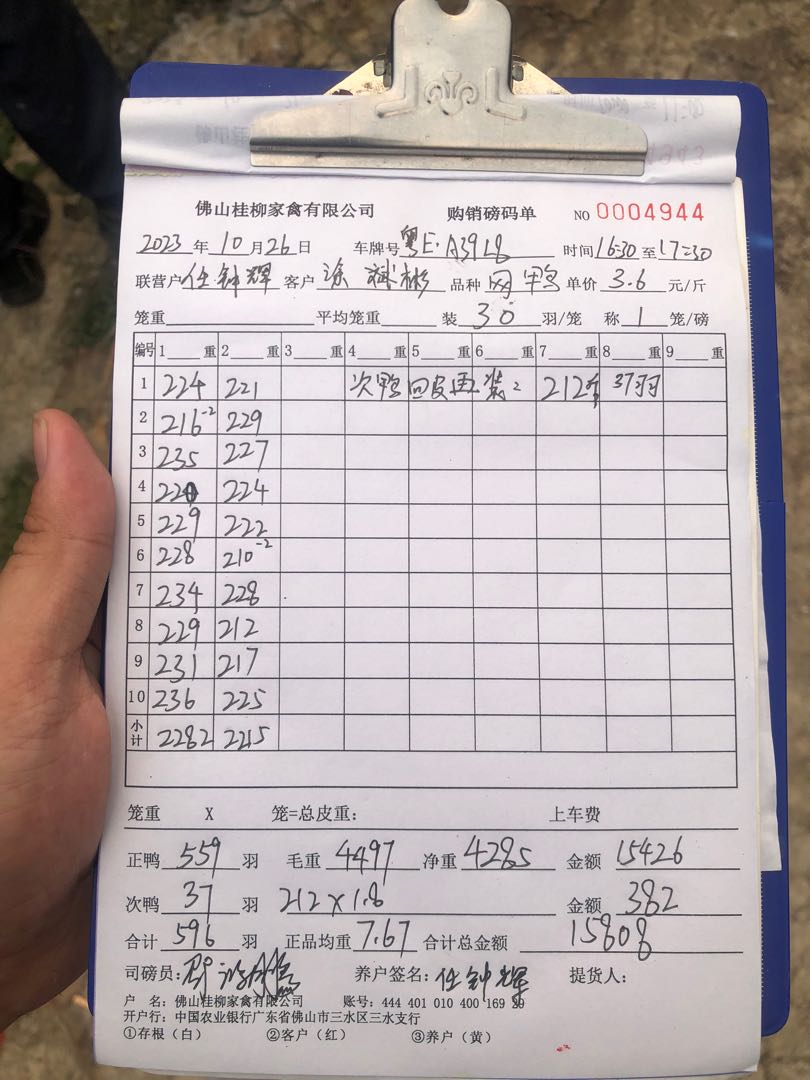 佛山桂柳家禽有限公司 购销磅码单 NO 0004944
2023 年 10 月 26 日 车牌号 粤E·A39L8 时间 16:30 至 17:30
联营户 任钟辉 客户 涂斌彬 品种 网鸭 单价 3.6 元/斤
笼重 平均笼重 装 30 羽/笼 称 1 笼/磅
编号 1 重 2 重 3 重 4 重 5 重 6 重 7 重 8 重 9 重
1 224 221 次鸭回皮再装: 212斤 37羽
2 216⁻² 229
3 235 227
4 220 224
5 229 222
6 228 210⁻²
7 234 228
8 229 212
9 231 217
10 236 225
小计 2282 2215
笼重 X 笼=总皮重: 上车费
正鸭 559 羽 毛重 4497 净重 4285 金额 15426
次鸭 37 羽 212×1.8 金额 382
合计 596 羽 正品均重 7.67 合计总金额 15808
司磅员: 养户签名: 任钟辉 提货人:
户 名: 佛山桂柳家禽有限公司 账号: 444 401 010 400 169 29
开户行: 中国农业银行广东省佛山市三水区三水支行
①存根（白） ②客户（红） ③养户（黄）